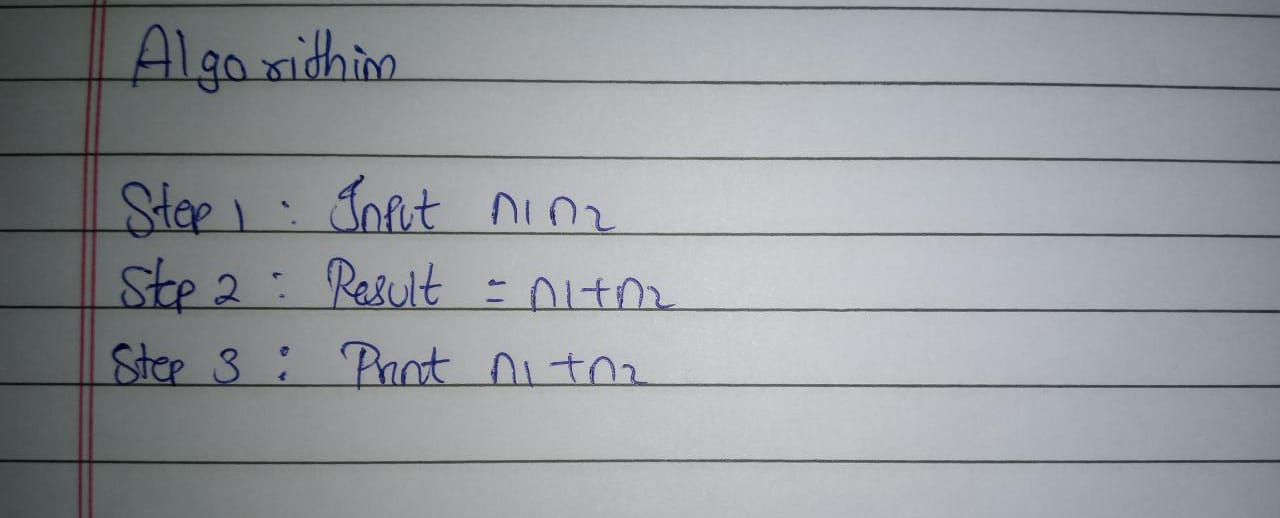 Algorithim
Step 1 : Input n1 n2
Step 2 : Result = n1+n2
Step 3 : Print n1 +n2